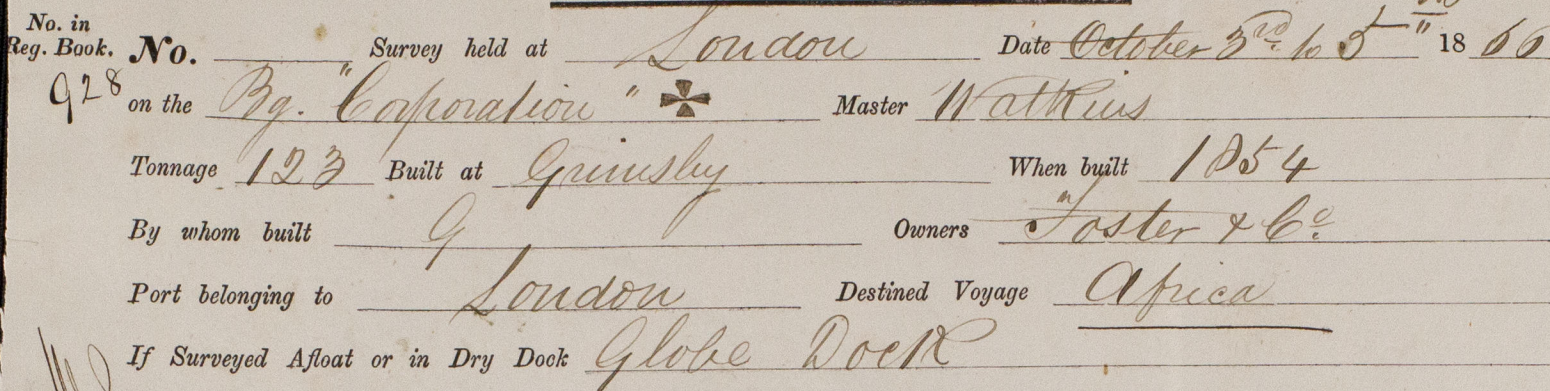 No. in
Reg. Book. No. Survey held at London Date October 3rd to 5th 1866
928 on the Bg. "Corporation" ✠ Master Watkins
Tonnage 123 Built at Grimsby When built 1854
By whom built G Owners Foster & Co.
Port belonging to London Destined Voyage Africa
If Surveyed Afloat or in Dry Dock Globe Dock